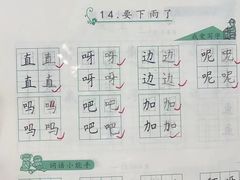 14.要下雨了
我爱写字
直直 呀呀 边边 呢呢
直直 呀呀 边边 呢呢
吗吗 吧吧 加加
吗吗 吧吧 加加
词语小能手